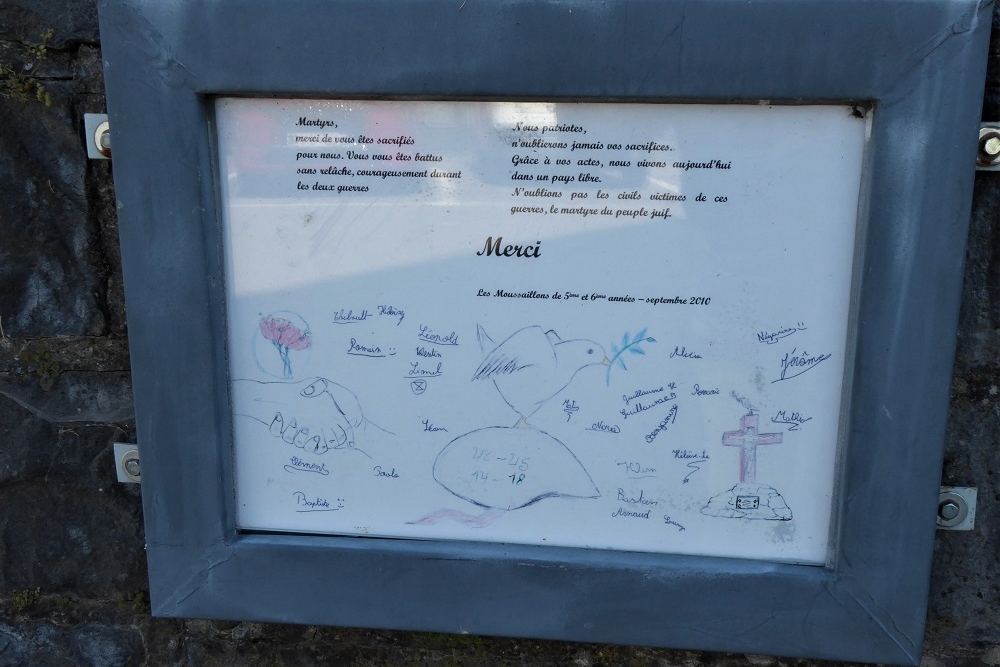 Martyrs,
merci de vous êtes sacrifiés
pour nous. Vous vous êtes battus
sans relâche, courageusement durant
les deux guerres
Nous patriotes,
n'oublierons jamais vos sacrifices.
Grâce à vos actes, nous vivons aujourd'hui
dans un pays libre.
N'oublions pas les civils victimes de ces
guerres, le martyre du peuple juif.
Merci
Les Moussaillons de 5ème et 6ème années – septembre 2010
Thibault
Romain
Léopold
Lionel
Léon
Clément
Baptiste
14-18
Guillaume
Guillaume
Benjamin
Romain
Jérôme
Mathis
Bastien
Arnaud